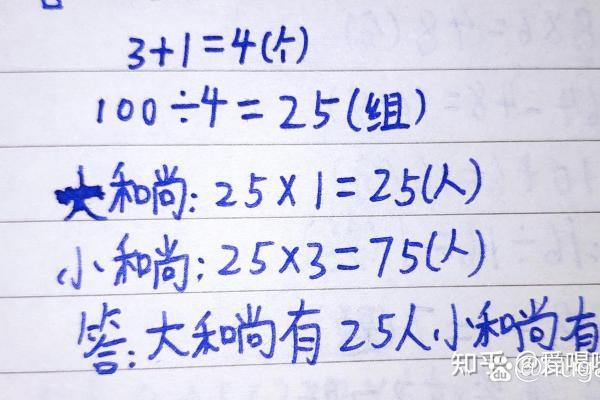 3+1=4(个)
100÷4=25(组)
大和尚:25×1=25(人)
小和尚:25×3=75(人)
答:大和尚有25人,小和尚有
知乎